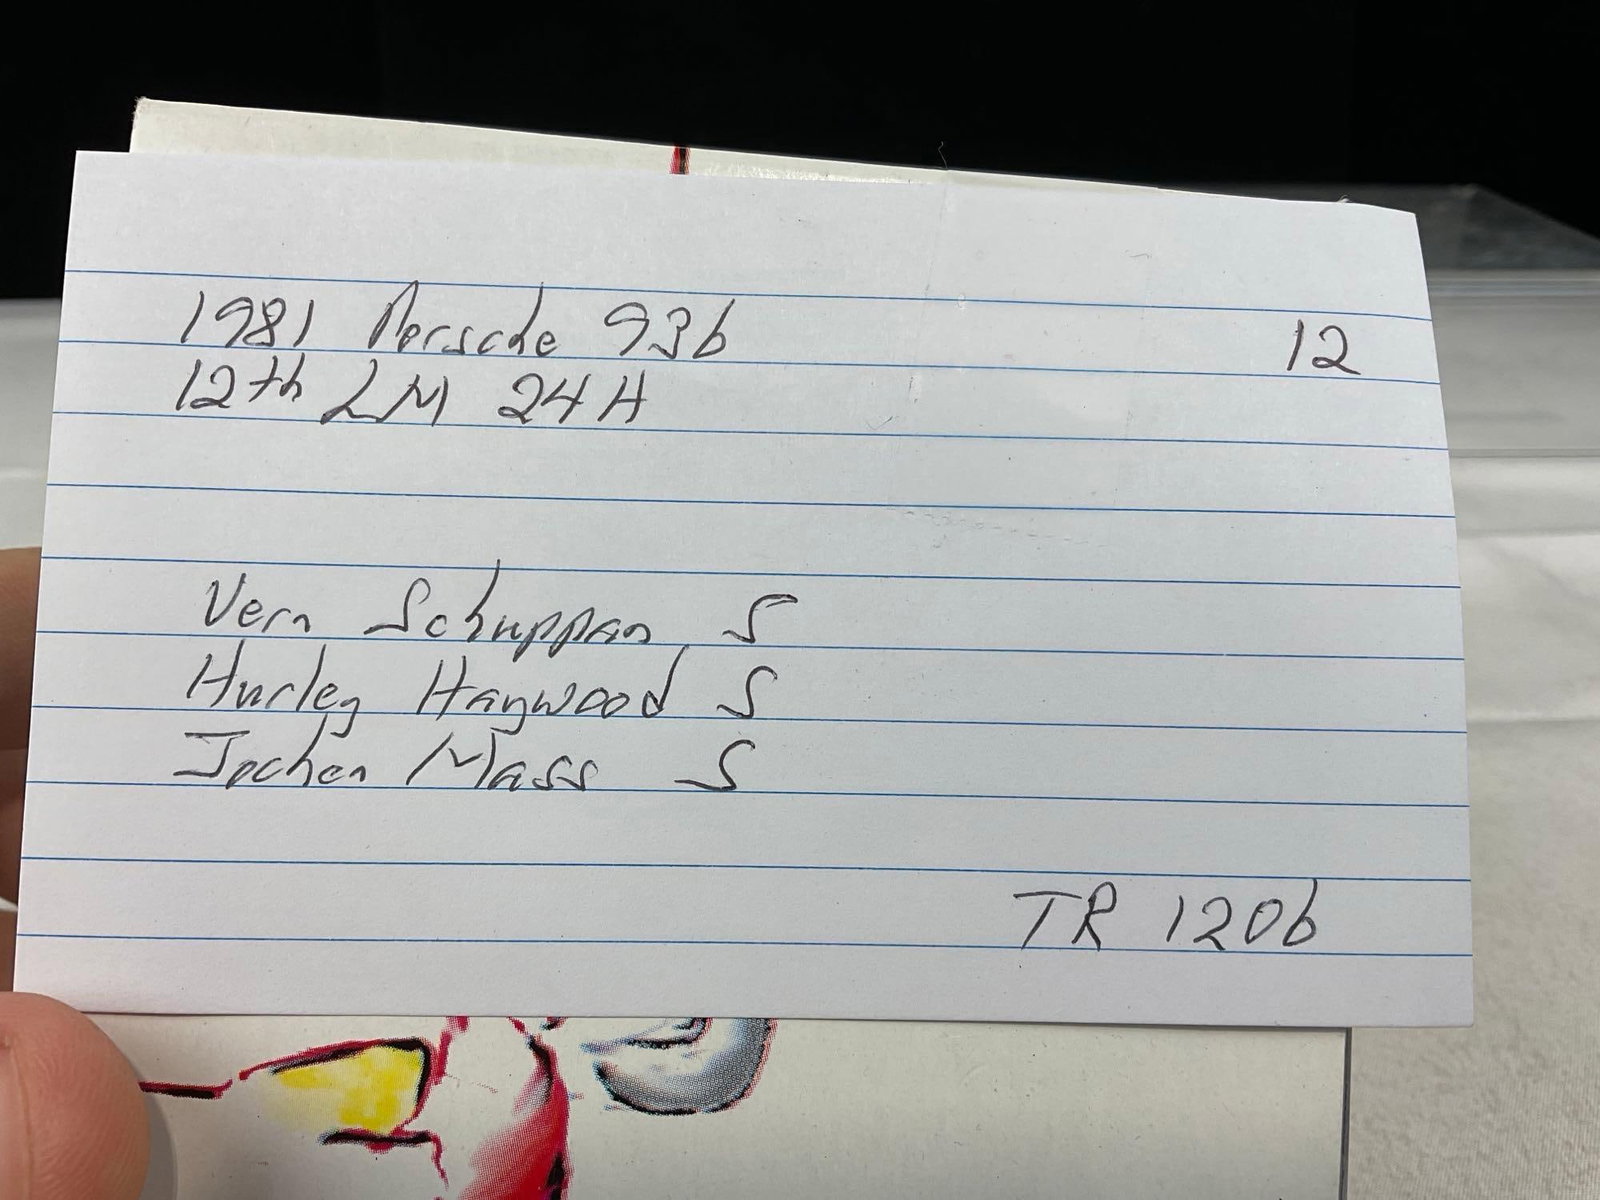 1981 Porsche 936 12
12th LM 24 H
Vern Schuppan S
Hurley Haywood S
Jochen Mass S
TR 1206